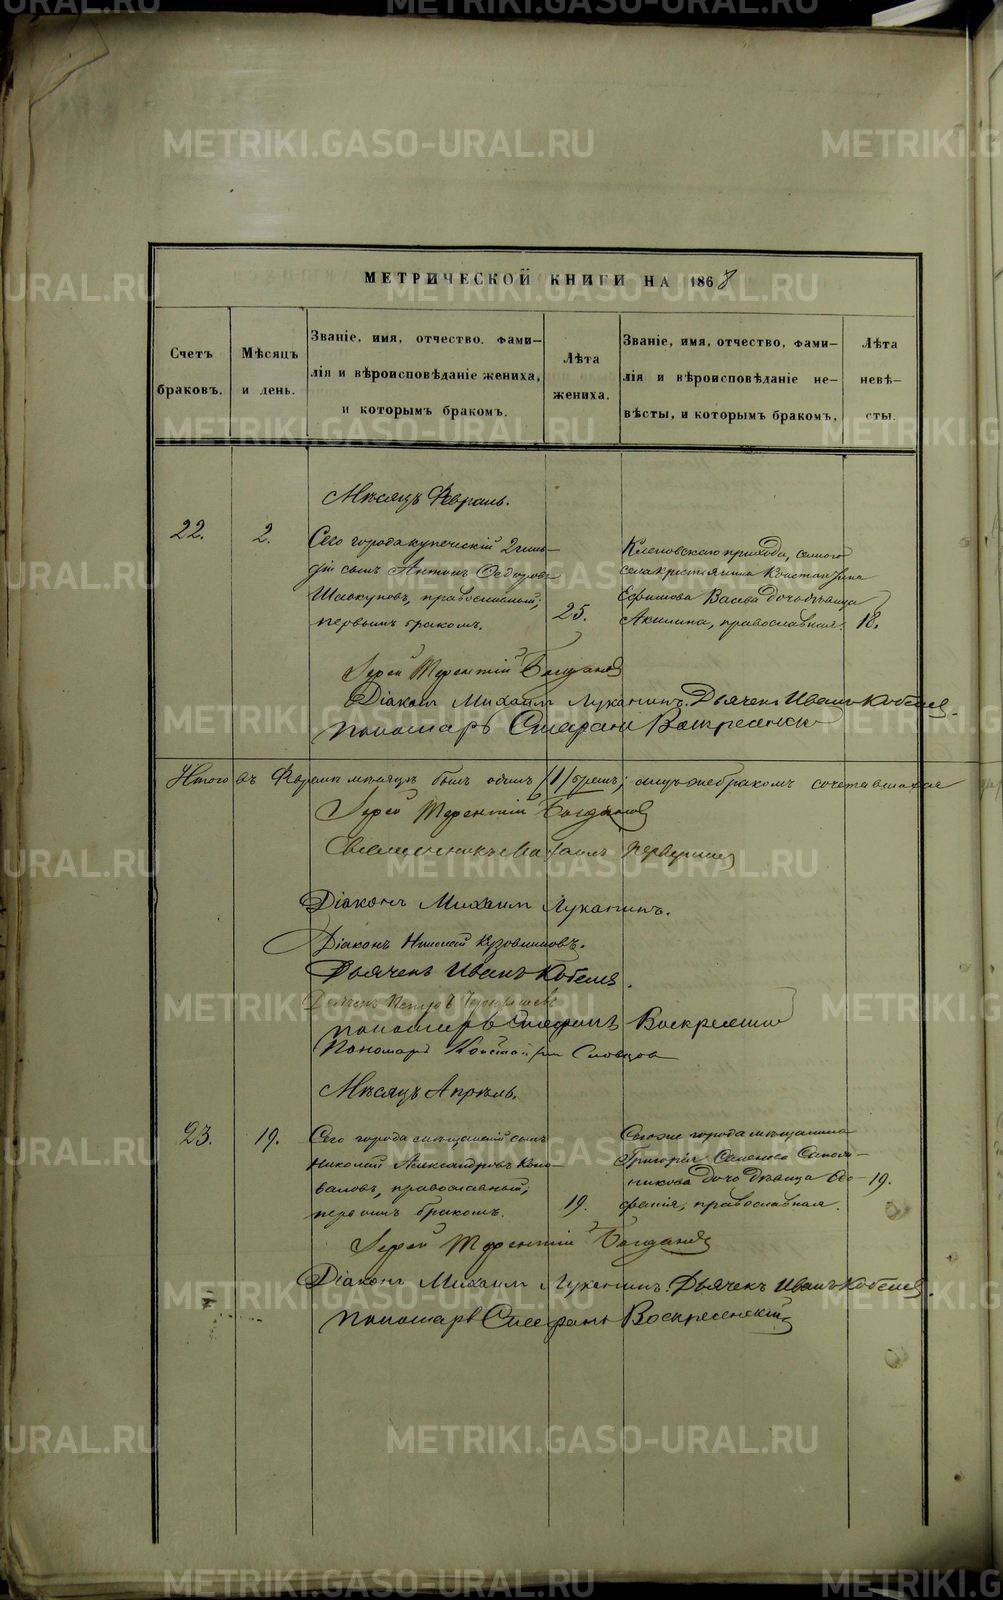 МЕТРИЧЕСКОЙ КНИГИ НА 1868
Счетъ браковъ.
Мѣсяцъ и день.
Званіе, имя, отчество, фами-
лія и вѣроисповѣданіе жениха,
и которымъ бракомъ.
Лѣта жениха.
Званіе, имя, отчество, фами-
лія и вѣроисповѣданіе не-
вѣсты, и которымъ бракомъ.
Лѣта невѣ-
сты.
Мѣсяцъ Февраль.
22.
2.
Сего города купеческій 2 гиль-
діи сынъ Антонъ Ѳедоровъ
Шавкуновъ, православный,
первымъ бракомъ.
25.
Кленовскаго прихода, самого
села крестьянина Константина
Ефимова Васева дочь дѣвица
Акилина, православная.
18.
Іерей Терентій Богдановъ
Діаконъ Михаилъ Луканинъ. Дьячекъ Иванъ Кобелев.
Пономарь Стефанъ Воскресенск
Итого въ Февралѣ мѣсяцѣ былъ одинъ /1/ бракъ; лицъ же бракомъ сочетавшихся
Іерей Терентій Богдановъ
Священникъ
Діаконъ Михаилъ Луканинъ.
Діаконъ Николай Кузовниковъ.
Дьячекъ Иванъ Кобелев.
Дьячекъ Петръ
пономарь Стефанъ Воскресенск
Пономарь Константин Словцов
Мѣсяцъ Апрѣль.
23.
19.
Сего города мѣщанскій сынъ
Николай Александровъ Коно-
валовъ, православный,
первымъ бракомъ.
19.
Сего же города мѣщанина
Григорія Семенова Сапож-
никова дочь дѣвица Ев-
фанія, православная.
19.
Іерей Терентій Богдановъ
Діаконъ Михаилъ Луканинъ. Дьячекъ Иванъ Кобелев.
Пономарь Стефанъ Воскресенскій
METRIKI.GASO-URAL.RU